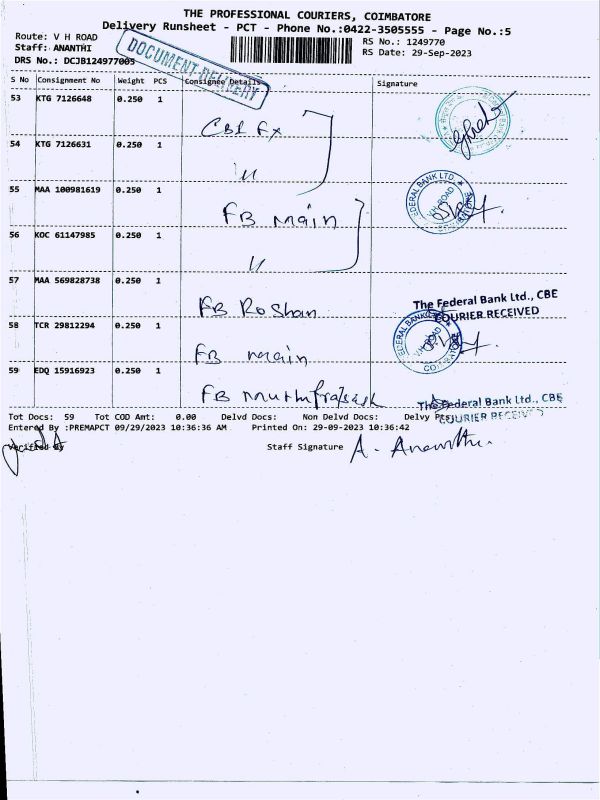 THE PROFESSIONAL COURIERS, COIMBATORE
Delivery Runsheet - PCT - Phone No.:0422-3505555 - Page No.:5
Route: V H ROAD
RS No.: 1249770
Staff: ANANTHI
RS Date: 29-Sep-2023
DRS No.: DCJB124977005
DOCUMENT DELIVERY
S No Consignment No Weight PCS Consignee Details Signature
53 KTG 7126648 0.250 1
CBI Fx
54 KTG 7126631 0.250 1
"
55 MAA 100981619 0.250 1
FEDERAL BANK LTD.
V.H. ROAD
COIMBATORE
FB main
56 KOC 61147985 0.250 1
"
57 MAA 569828738 0.250 1
FB Roshan
The Federal Bank Ltd., CBE
COURIER RECEIVED
58 TCR 29812294 0.250 1
FEDERAL BANK
V.H. ROAD
COIMBATORE
FB main
59 EDQ 15916923 0.250 1
FB Muthuprakash
The Federal Bank Ltd., CBE
COURIER RECEIVED
Tot Docs: 59 Tot COD Amt: 0.00 Delvd Docs: Non Delvd Docs: Delvy Pts:
Entered By :PREMAPCT 09/29/2023 10:36:36 AM Printed On: 29-09-2023 10:36:42
Verified By Staff Signature A. Ananthi.